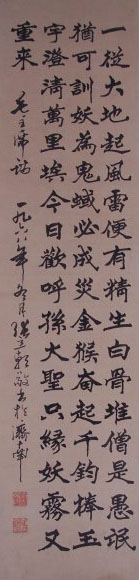 一從大地起風雷便有精生白骨堆僧是愚氓
猶可訓妖為鬼蜮必成災金猴奮起千鈞棒玉
宇澄清萬里埃今日歡呼孫大聖只緣妖霧又
重來 毛主席詩 一九六八年 月 敬書於濟南